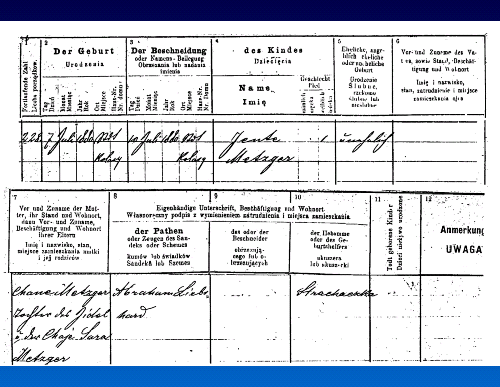 1
2
3
4
5
6
Fortlaufende Zahl
Liczba porządkow.
Der Geburt
Urodzenia
Tag
Dzień
Monat
Miesiąc
Jahr
Rok
Ort
Miejsce
Haus-Nr.
Nr. domu
Der Beschneidung
oder Namens-Beilegung
Obrzezania lub nadania
imienia
Tag
Dzień
Monat
Miesiąc
Jahr
Rok
Ort
Miejsce
Haus-Nr.
Nr. domu
des Kindes
Dziecięcia
Name
Imię
Geschlecht
Płeć
männlich
męzka
weiblich
żeńska
Eheliche, angeblich
eheliche
oder uneheliche
Geburt
Urodzenie
Ślubne,
rzekomo
ślubne lub
nieślubne
Vor- und Zuname des Va-
ters, sowie Stand, Beschäf-
tigung und Wohnort
Imię i nazwisko,
stan, zatrudnienie i miejsce
zamieszkania ojca
228 7 Juli 1880
10 Juli 1880
Jente 1
Metzger
7
8
9
10
11
12
Vor und Zuname der Mut-
ter, ihr Stand und Wohnort,
dann Vor- und Zuname,
Beschäftigung und Wohnort
ihrer Eltern
Imię i nazwisko, stan,
miejsce zamieszkania matki
i jej rodziców
Eigenhändige Unterschrift, Beschäftigung und Wohnort
Własnoręczny podpis z wymienieniem zatrudnienia i miejsca zamieszkania
der Pathen
oder Zeugen des San-
deks oder Schemes
kumów lub świadków
Sandeka lub Szemes
des oder der
Beschneider
obrzezują-
cego lub o-
brzezujących
der Hebamme
oder des Ge-
burtshelfers
akuszera
lub akuszerki
Todt geborene Kinder
Dzieci nieżywo urodzone
Anmerkung
UWAGA
Chane Metzger Abraham Lieb-
Tochter des hard
u. der Chaje Sara
Metzger